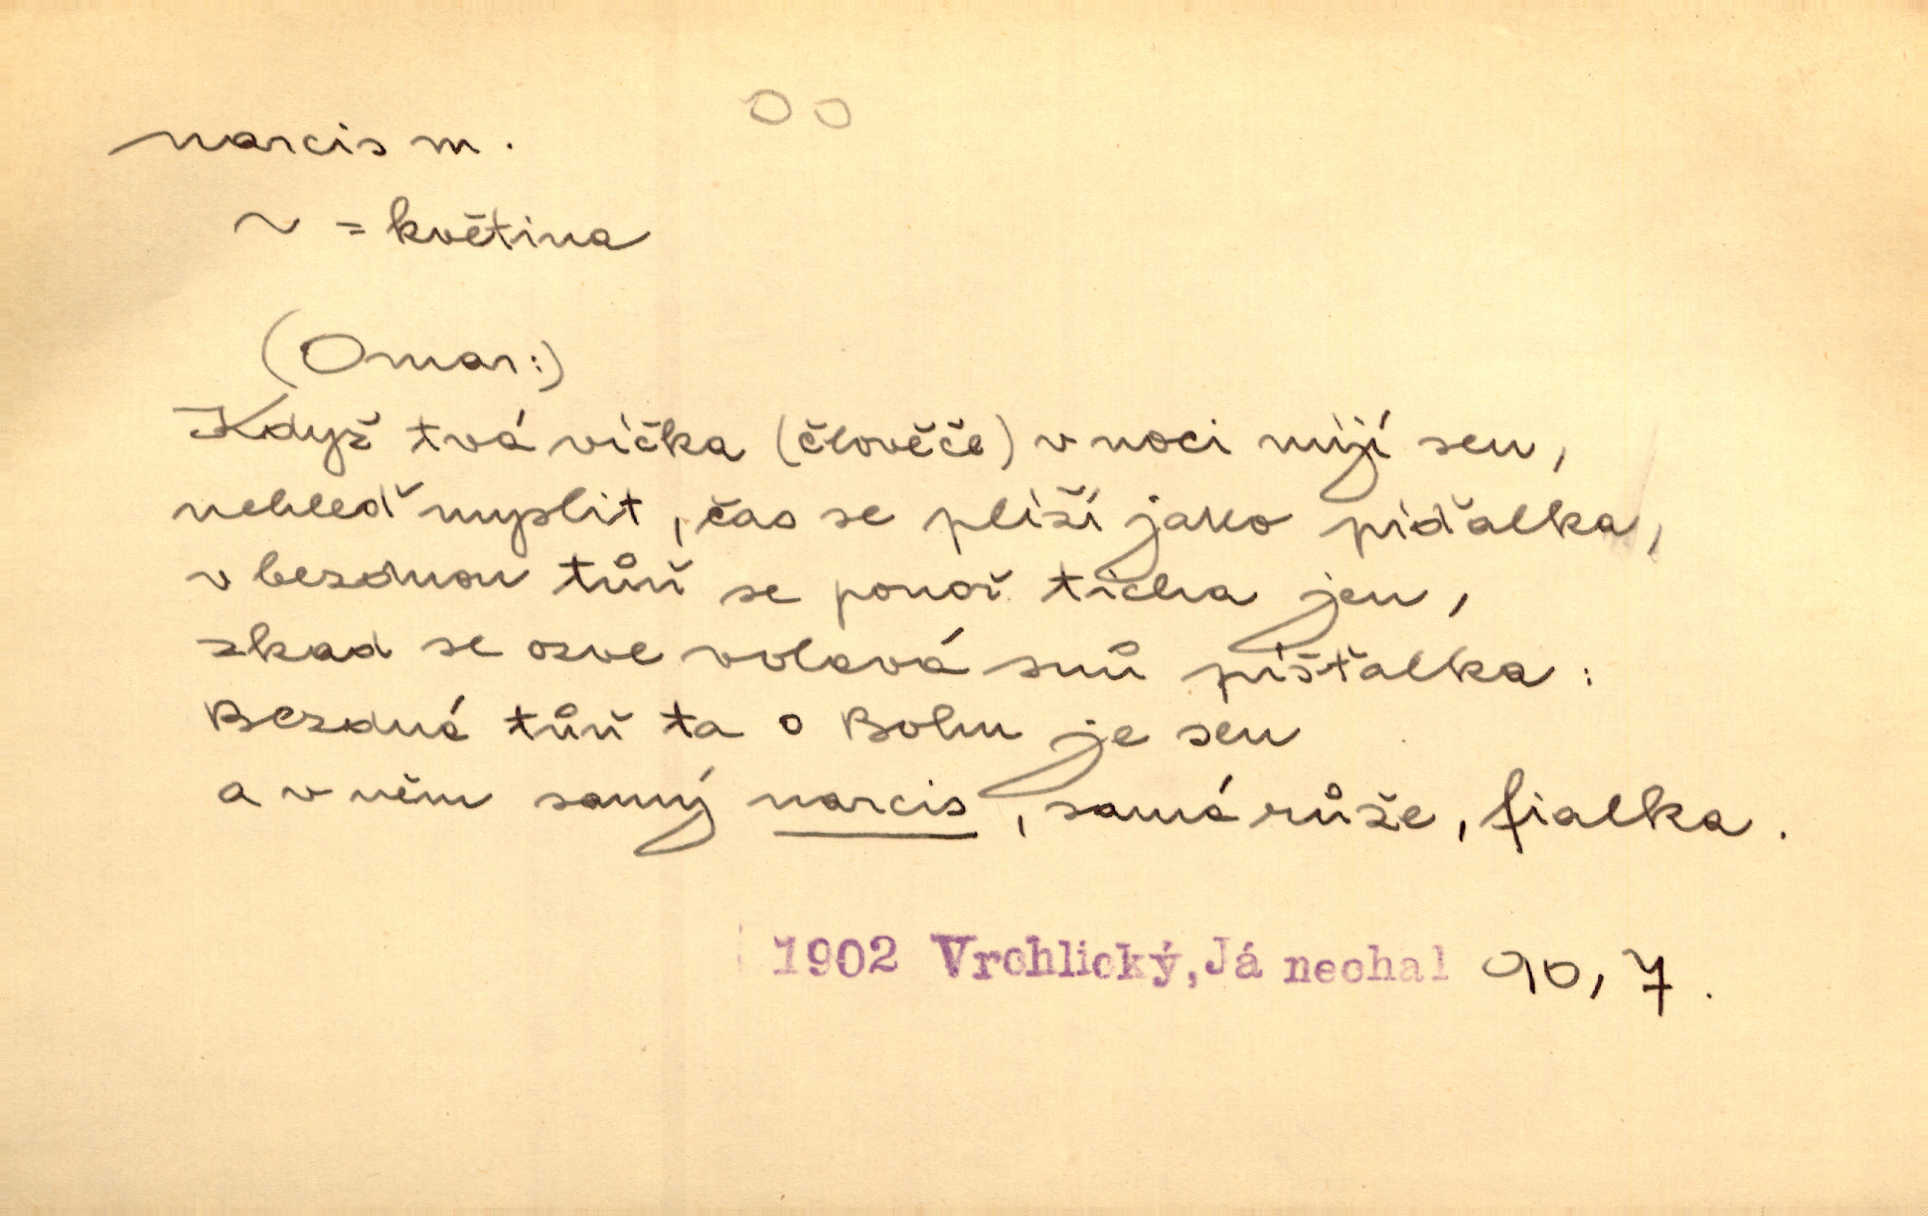 OO
narcis m.
~ = květina
(Omar:)
Když tvá víčka (člověče) v noci míjí sen,
nehleď myslit, čas se plíží jako píďalka,
v bezdnou tůň se ponoř ticha jen,
zkad se ozve volavá snů píšťalka:
Bezdná tůň ta o Bohu je sen
a v něm samý narcis, samá růže, fialka.
1902 Vrchlický, Já nechal 90, 7.